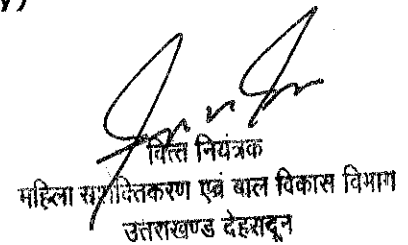 y)
वित्त नियंत्रक
महिला सशक्तिकरण एवं बाल विकास विभाग
उत्तराखण्ड देहरादून